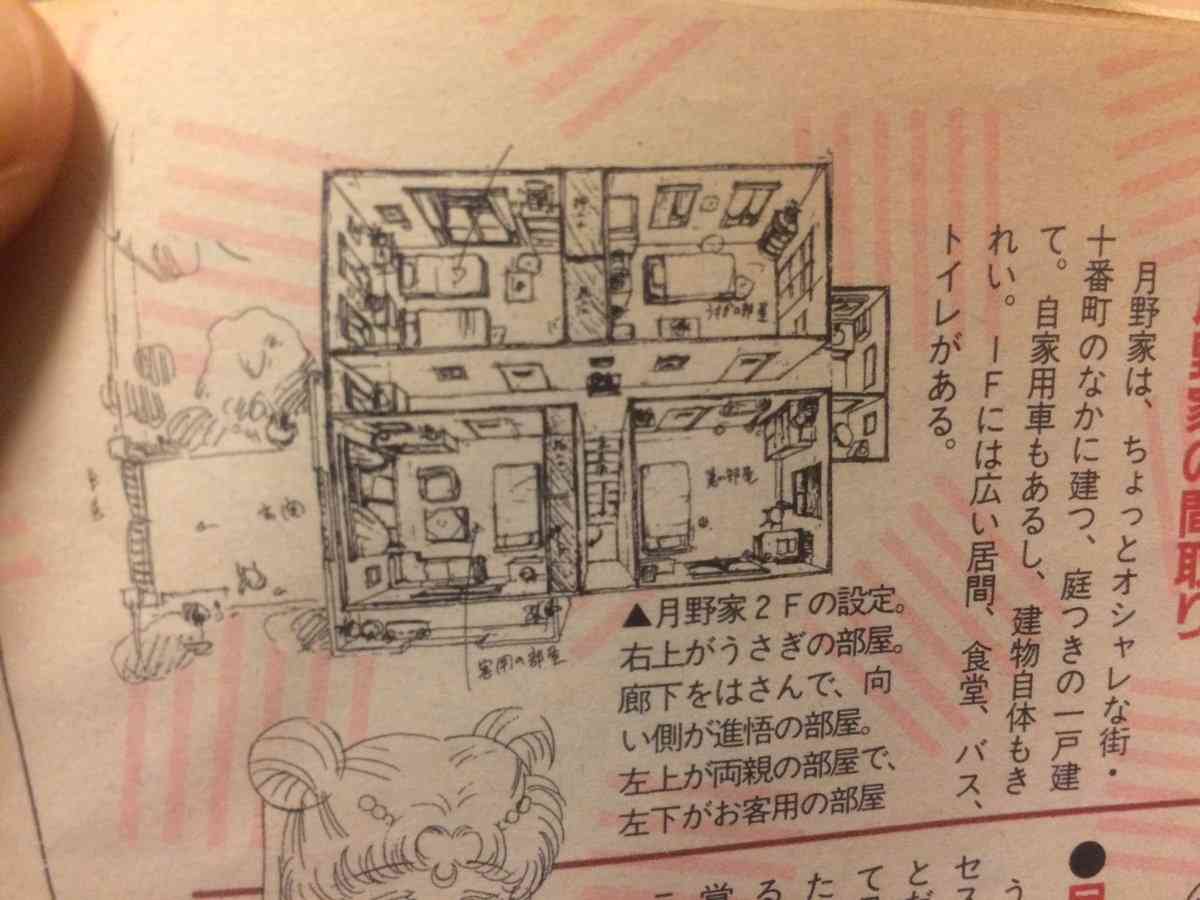 野家の間取り
月野家は、ちょっとオシャレな街・
十番町のなかに建つ、庭つきの一戸建
て。自家用車もあるし、建物自体もき
れい。１Ｆには広い居間、食堂、バス、
トイレがある。
うさぎの部屋
玄関
客用の部屋
▲月野家２Ｆの設定。
右上がうさぎの部屋。
廊下をはさんで、向
い側が進悟の部屋。
左上が両親の部屋で、
左下がお客用の部屋
●
う
セス
とだ
て
た
る